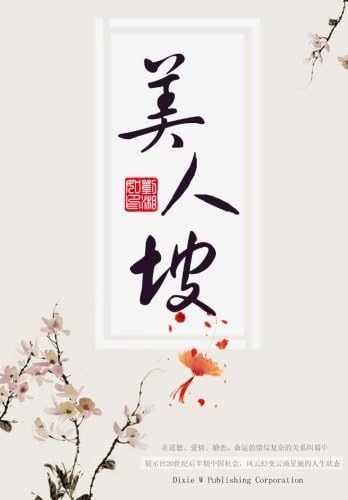 美人坡
劉湘如印
在道德、爱情、婚恋、命运的错综复杂的关系纠葛中
展示出20世纪后半期中国社会，风云幻变云涌星驰的人生状态
Dixie W Publishing Corporation